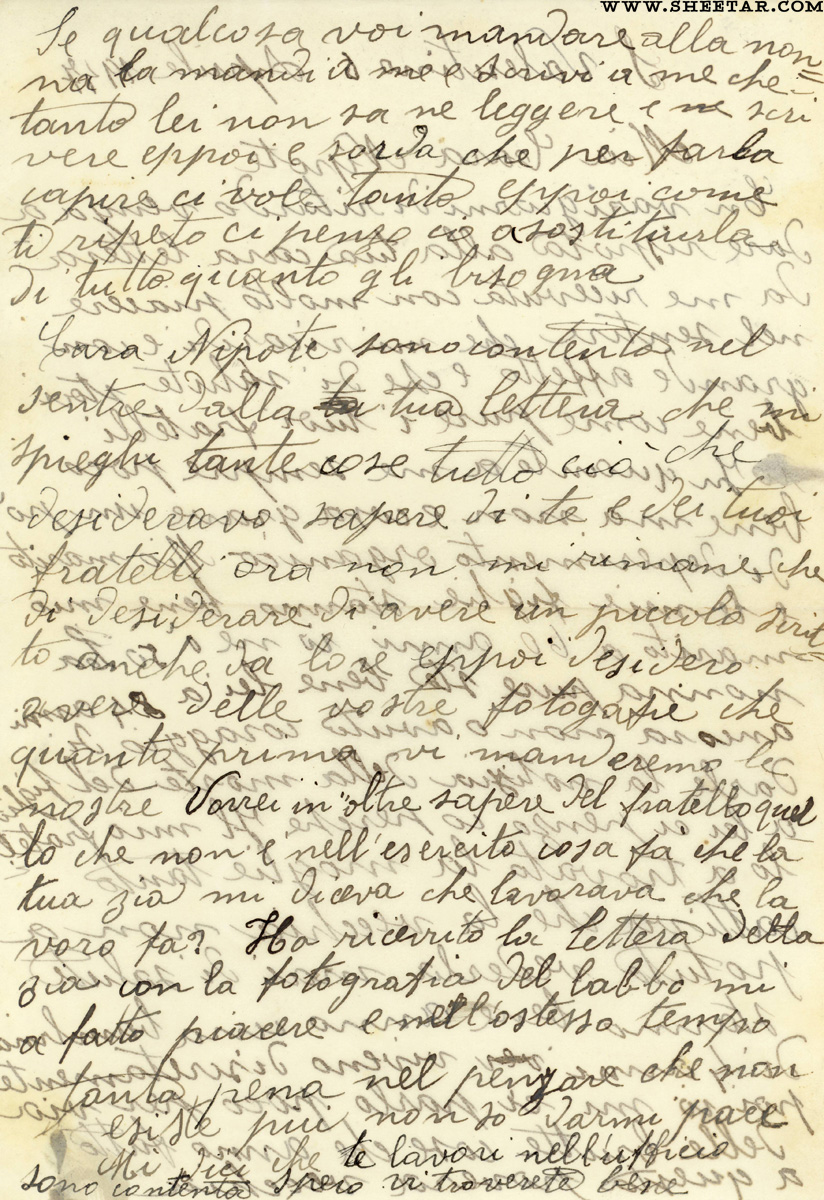 WWW.SHEETAR.COM
Se qualcosa voi mandare alla non=
na la mandi a me e scrivi a me che-
tanto lei non sa ne leggere e ne scri
vere eppoi e sorda che per farla
capire ci vole tanto eppoi come
ti ripeto ci penso io a sostituirla
di tutto quanto gli bisogna
Cara Nipote sono contenta nel
sentire dalla tua lettera che mi
spieghi tante cose tutto ciò che
desideravo sapere di te e dei tuoi
fratelli ora non mi rimane che
di desiderare di avere un piccolo scrit=
to anche da lore eppoi desidero
avere delle vostre fotogafie che
quanto prima vi manderemo le
nostre Vorrei in oltre sapere del fratello quel
lo che non é nell'esercito cosa fà che la
tua zia mi diceva che lavorava che la
voro fa? Ho ricevuto la lettera della
zia con la fotografia del babbo mi
a fatto piacere e nell'ostesso tempo
tanta pena nel penzare che non
esiste piu non so darmi pace
Mi dici che te lavori nell'ufficio
sono contenta spero vi troverete bene